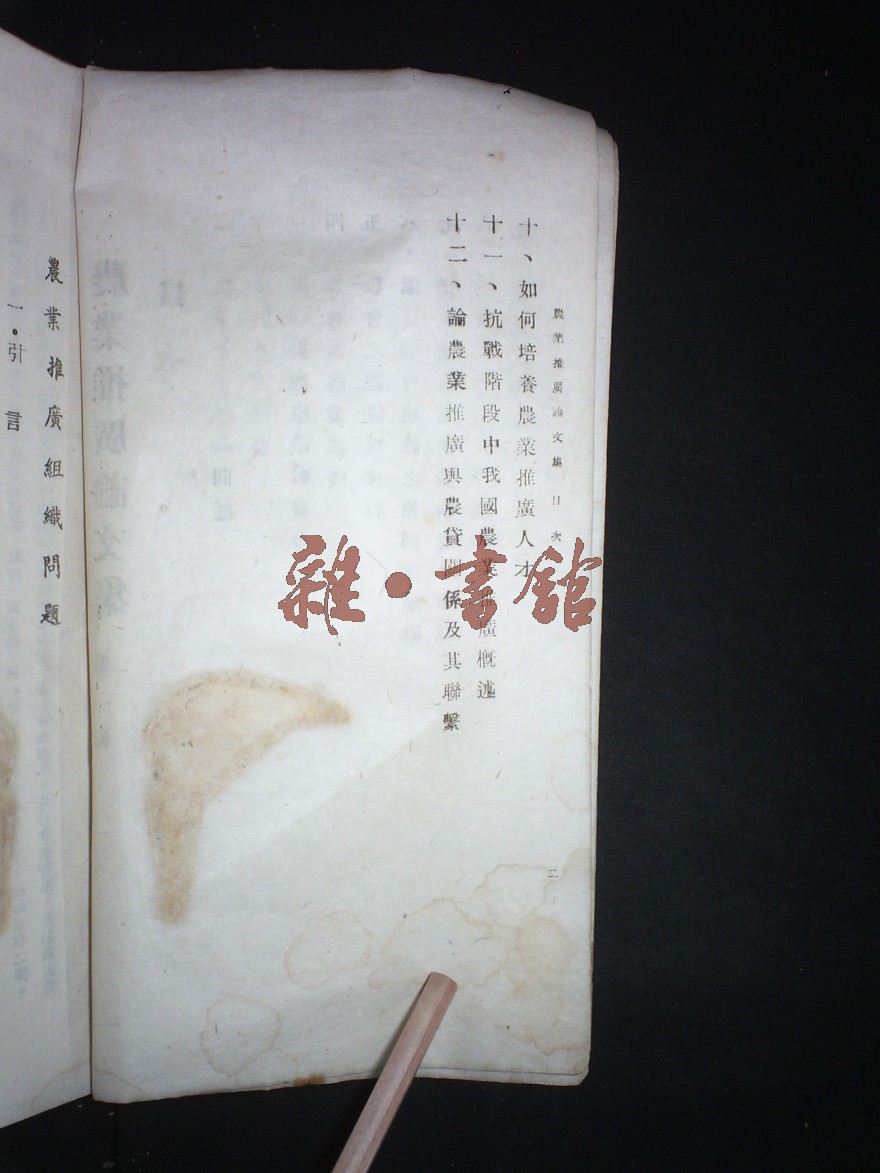 農業推廣論文集 目次
十、如何培養農業推廣人才
十一、抗戰階段中我國農業推廣概述
十二、論農業推廣與農貸關係及其聯繫
二
農業推廣組織問題
一•引言
雜•書館